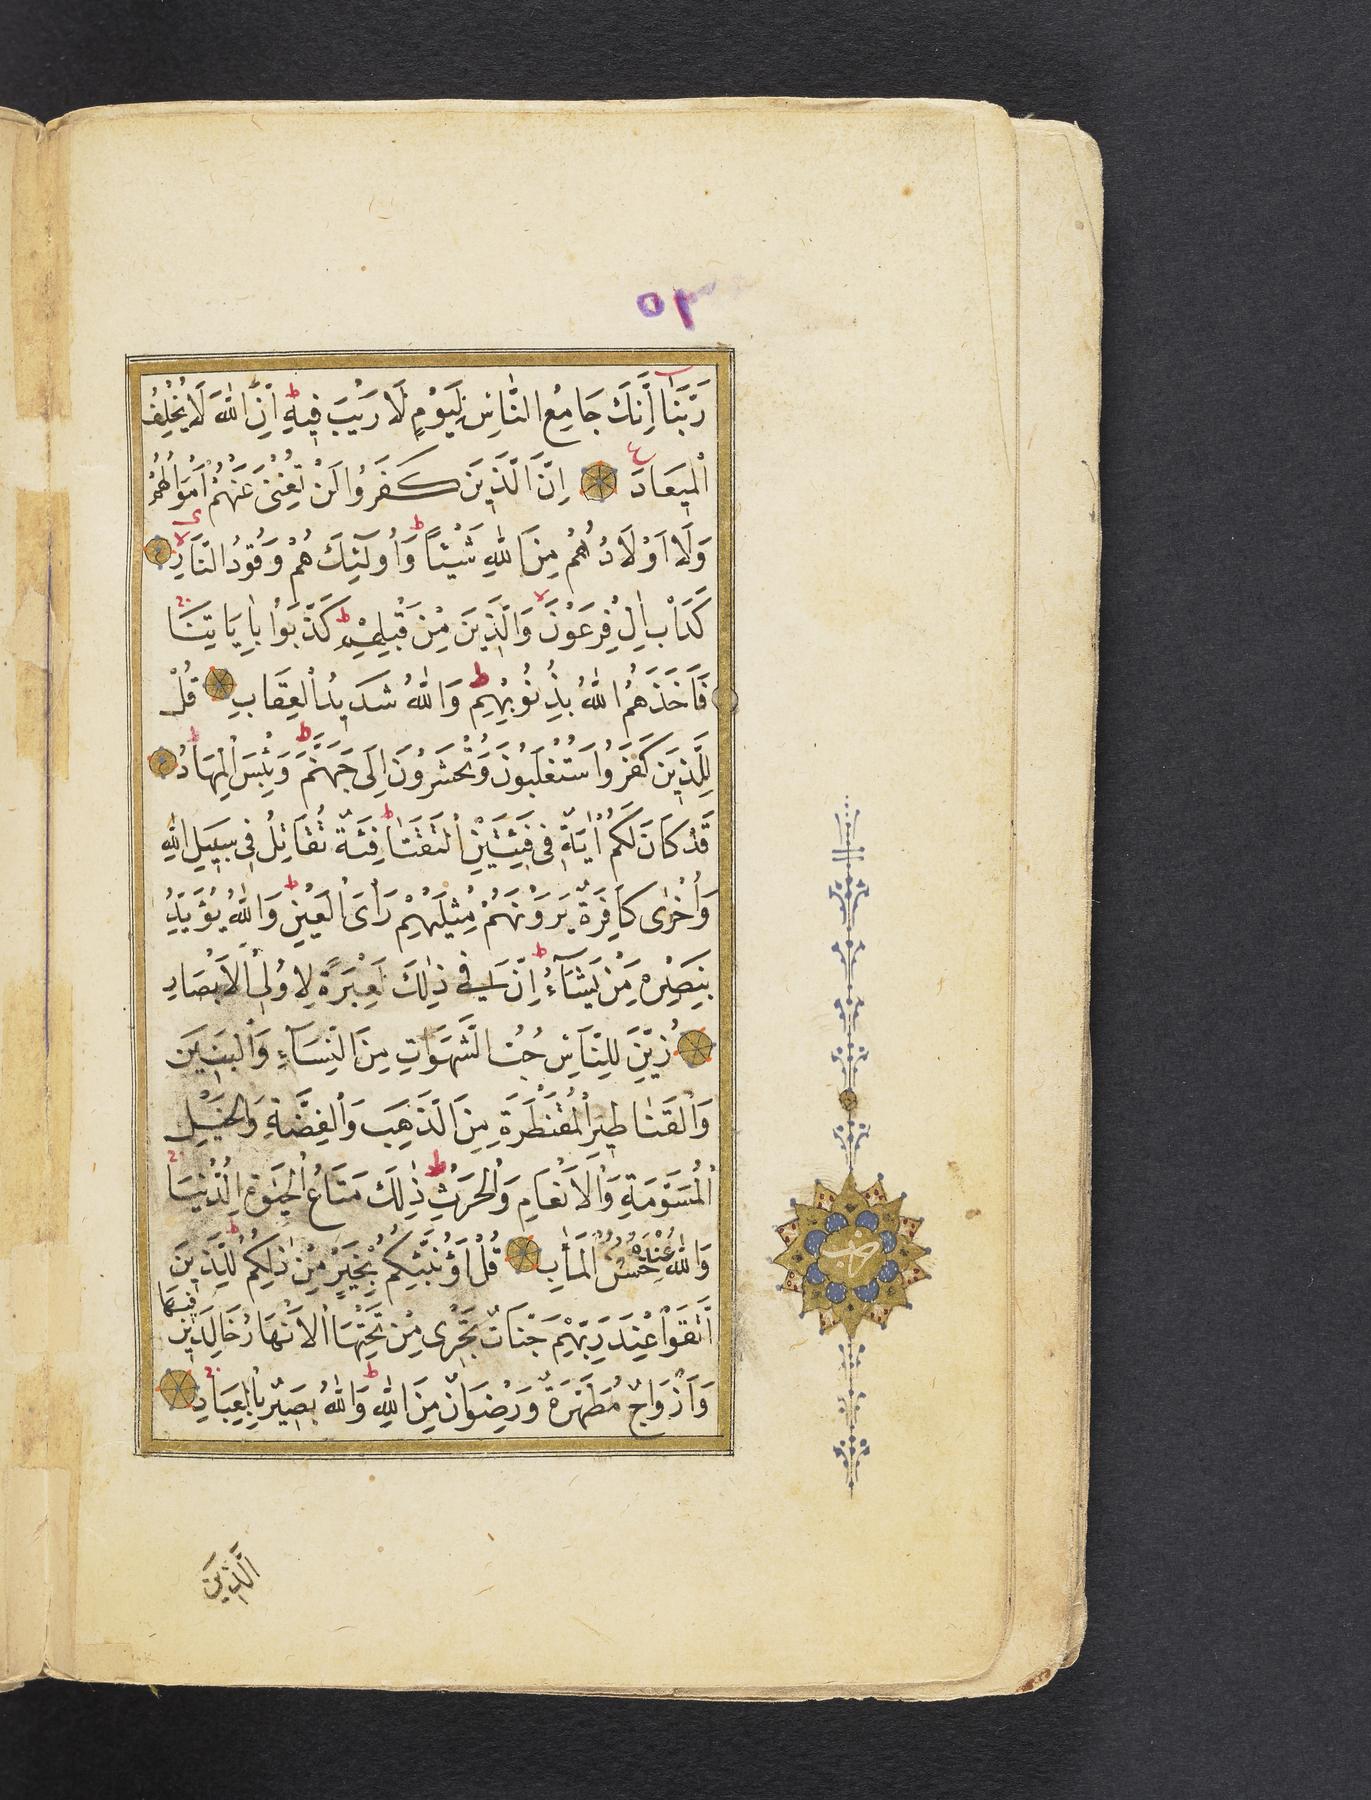 ٥٣
رَبَّنَا إِنَّكَ جَامِعُ النَّاسِ لِيَوْمٍ لَا رَيْبَ فِيهِ ط إِنَّ اللّٰهَ لَا يُخْلِفُ
الْمِيعَادَ ع إِنَّ الَّذِينَ كَفَرُوا لَنْ تُغْنِيَ عَنْهُمْ أَمْوَالُهُمْ
وَلَا أَوْلَادُهُمْ مِنَ اللّٰهِ شَيْئًا ط وَأُولٰئِكَ هُمْ وَقُودُ النَّارِ لا
كَدَأْبِ اٰلِ فِرْعَوْنَ لا وَالَّذِينَ مِنْ قَبْلِهِمْ ط كَذَّبُوا بِاٰيَاتِنَا
فَأَخَذَهُمُ اللّٰهُ بِذُنُوبِهِمْ ط وَاللّٰهُ شَدِيدُ الْعِقَابِ قُلْ
لِلَّذِينَ كَفَرُوا سَتُغْلَبُونَ وَتُحْشَرُونَ إِلَى جَهَنَّمَ ط وَبِئْسَ الْمِهَادُ
قَدْ كَانَ لَكُمْ اٰيَةٌ فِي فِئَتَيْنِ الْتَقَتَا ط فِئَةٌ تُقَاتِلُ فِي سَبِيلِ اللّٰهِ
وَأُخْرٰى كَافِرَةٌ يَرَوْنَهُمْ مِثْلَيْهِمْ رَأْيَ الْعَيْنِ ط وَاللّٰهُ يُؤَيِّدُ
بِنَصْرِهِ مَنْ يَشَآءُ ط إِنَّ فِي ذٰلِكَ لَعِبْرَةً لِأُولِي الْأَبْصَارِ
زُيِّنَ لِلنَّاسِ حُبُّ الشَّهَوَاتِ مِنَ النِّسَآءِ وَالْبَنِينَ
وَالْقَنَاطِيرِ الْمُقَنْطَرَةِ مِنَ الذَّهَبِ وَالْفِضَّةِ وَالْخَيْلِ
الْمُسَوَّمَةِ وَالْأَنْعَامِ وَالْحَرْثِ ط ذٰلِكَ مَتَاعُ الْحَيٰوةِ الدُّنْيَا
وَاللّٰهُ عِنْدَهُ حُسْنُ الْمَاٰبِ قُلْ أَؤُنَبِّئُكُمْ بِخَيْرٍ مِنْ ذٰلِكُمْ ط لِلَّذِينَ
اتَّقَوْا عِنْدَ رَبِّهِمْ جَنَّاتٌ تَجْرِي مِنْ تَحْتِهَا الْأَنْهَارُ خَالِدِينَ فِيهَا
وَأَزْوَاجٌ مُطَهَّرَةٌ وَرِضْوَانٌ مِنَ اللّٰهِ ط وَاللّٰهُ بَصِيرٌ بِالْعِبَادِ
حزب
الَّذِينَ